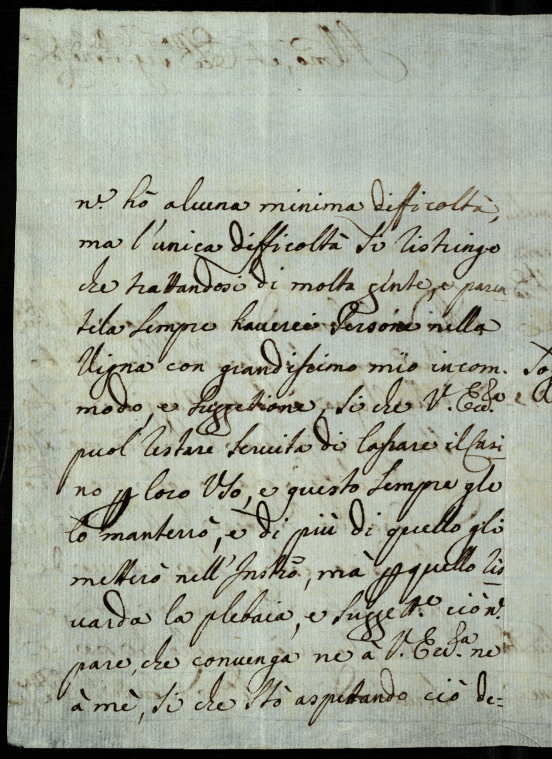 n.e hò alcuna minima difficoltà,
ma l'unica difficoltà si ristringe
che trattandosi di molta gente, e paren
tela sempre haverei Persone nella
Vigna con grandissimo mio incom-
modo, e suggettione, si che V. Ecc.za
puol restare servita di lassare il Casi
no p loro Uso, e questo sempre glie
lo manterrò, e di più di quello gli
metterò nell'Instrō, mà p quello ris
guarda la plebaia, e suggett.e ciò n.
pare, che convenga ne a V. Ecc.za ne
à mè, si che stò aspettando ciò de=